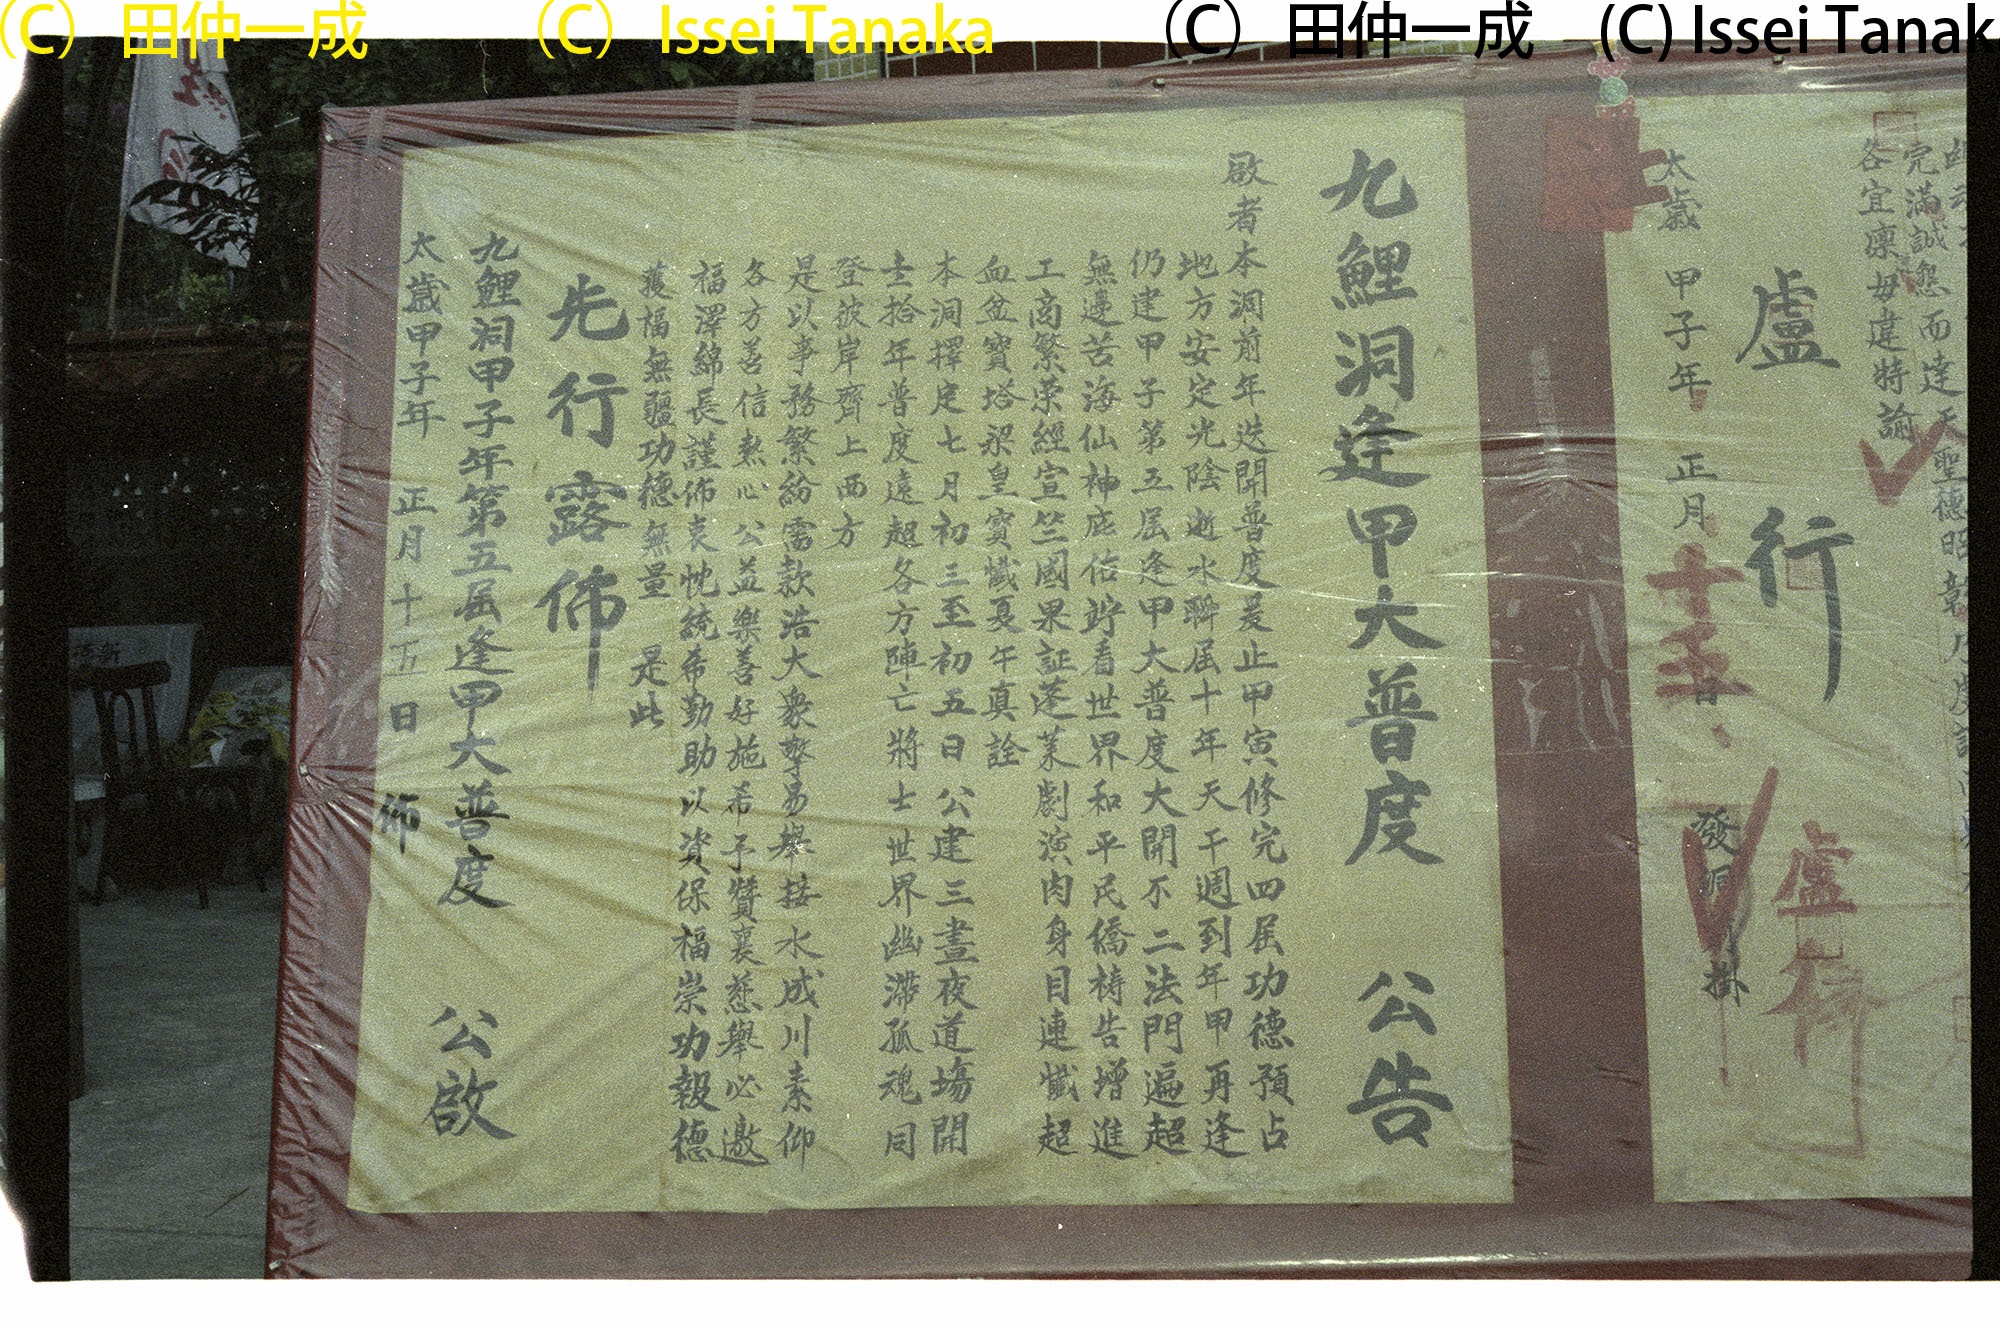 (C) 田仲一成 (C) Issei Tanaka (C) 田仲一成 (C) Issei Tanak
完滿誠怨而達天聖德昭彰
各宜凜毋違特諭
盧行
太歲甲子年 正月 日 發洞 掛
十五
盧行
九鯉洞逢甲大普度 公告
啟者本洞前年迭聞普度爰止甲寅修完四屆功德預占
地方安定光陰逝水瞬屆十年天干週到年甲再逢
仍建甲子第五屆逢甲大普度大開不二法門遍超
無邊苦海仙神庇佑竚看世界和平民僑禱告增進
工商繁荣經宣竺國果証蓬莱劇演肉身目連懺超
血盆寶塔梁皇寶懺戛午真詮
本洞擇定七月初三至初五日公建三晝夜道塲開
壬拾年普度遠超各方陣亡將士世界幽滯孤魂同
登彼岸齊上西方
是以事務繁紛需款浩大衆擎易舉接水成川素仰
各方善信熱心公益樂善好施希予贊襄慈舉必邀
福澤綿長謹佈衷忱統希勤助以資保福崇功報德
獲福無疆功德無量 是此
先行露佈
九鯉洞甲子年第五屆逢甲大普度 公啟
太歲甲子年 正月十五日 佈